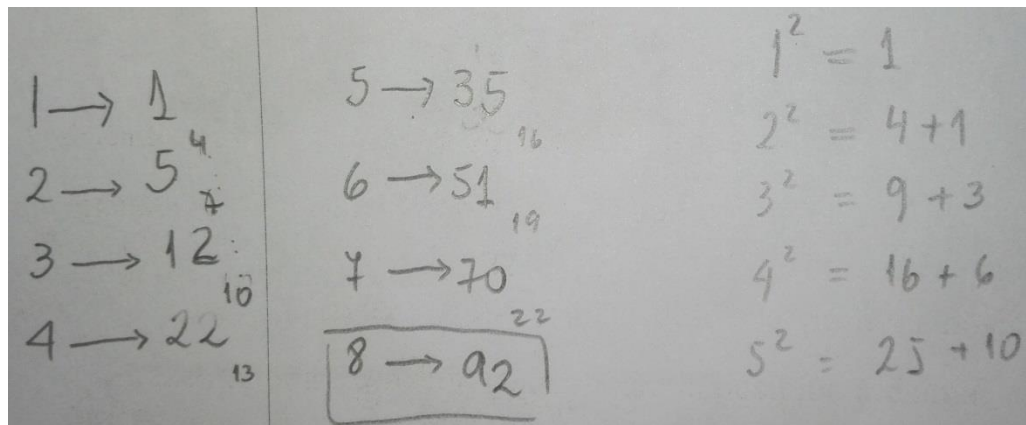 1 → 1
4
2 → 5
7
3 → 12
10
4 → 22
13
5 → 35
16
6 → 51
19
7 → 70
22
8 → 92
1² = 1
2² = 4+1
3² = 9+3
4² = 16+6
5² = 25+10